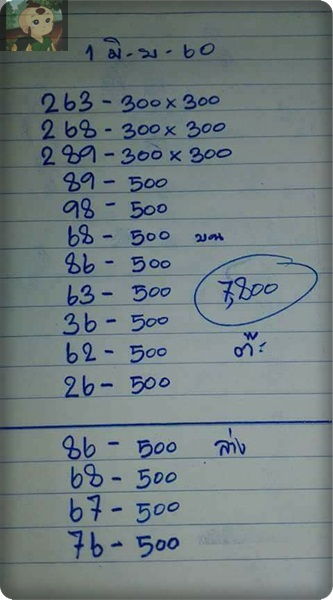 1 มิ.ย. 60
263 - 300 x 300
268 - 300 x 300
289 - 300 x 300
89 - 500
98 - 500
68 - 500 บน
86 - 500
63 - 500 7,800
36 - 500
62 - 500 ต๊ะ
26 - 500
86 - 500 ล่าง
68 - 500
67 - 500
76 - 500